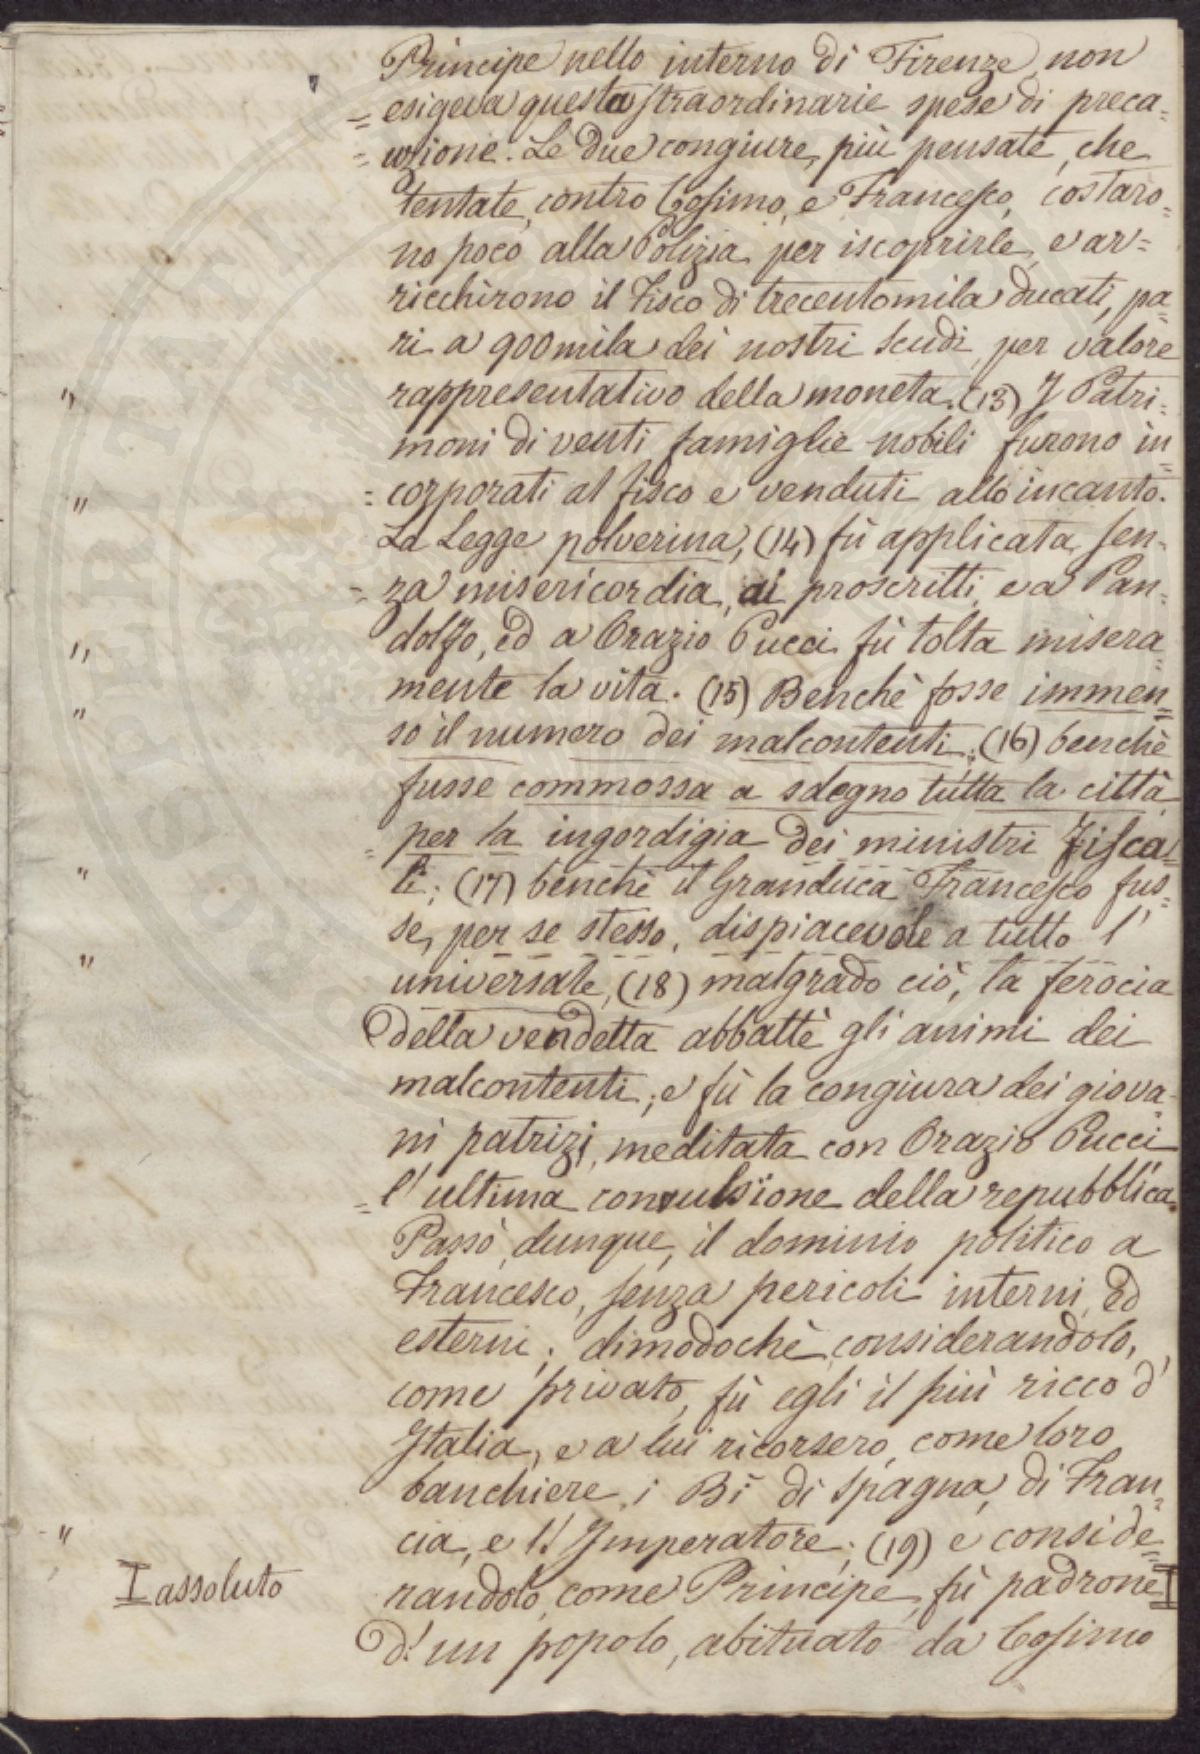 Principe nello interno di Firenze, non
= esigeva questa straordinarie spese di preca=
= uzione. Le due congiure, più pensate, che
tentate, contro Cosimo, e Francesco, costaro=
no poco alla Polizia per iscoprirle, e ar=
ricchirono il Fisco di trecentomila ducati, pa=
ri a 900mila dei nostri scudi per valore
" rappresentativo della moneta. (13) I Patri=
moni di venti famiglie nobili furono in=
= corporati al fisco e venduti allo incanto.
" La Legge polverina, (14) fù applicata sen=
= za misericordia, ai proscritti, e a Pan=
dolfo, ed a Orazio Pucci fù tolta misera=
" mente la vita. (15) Benchè fosse immen=
" so il numero dei malcontenti; (16) benchè
fusse commossa a sdegno tutta la città
= per la ingordigia dei ministri Fisca=
" li; (17) benchè il Granduca Francesco fus=
se, per se stesso, dispiacevole a tutto l'
" universale, (18) malgrado ciò, la ferocia
della vendetta abbattè gli animi dei
malcontenti; e fù la congiura dei giova=
ni patrizj, meditata con Orazio Pucci
= l'ultima convulsione della repubblica.
Passò, dunque, il dominio politico a
Francesco, senza pericoli interni, ed
esterni; dimodochè considerandolo,
come privato, fù egli il più ricco d'
Italia, e a lui ricorsero, come loro
banchiere, i Rè di Spagna, di Fran=
" cia, e l'Imperatore; (19) e conside=
I assoluto
randolo, come Principe, fù padrone I
d'un popolo, abituato da Cosimo